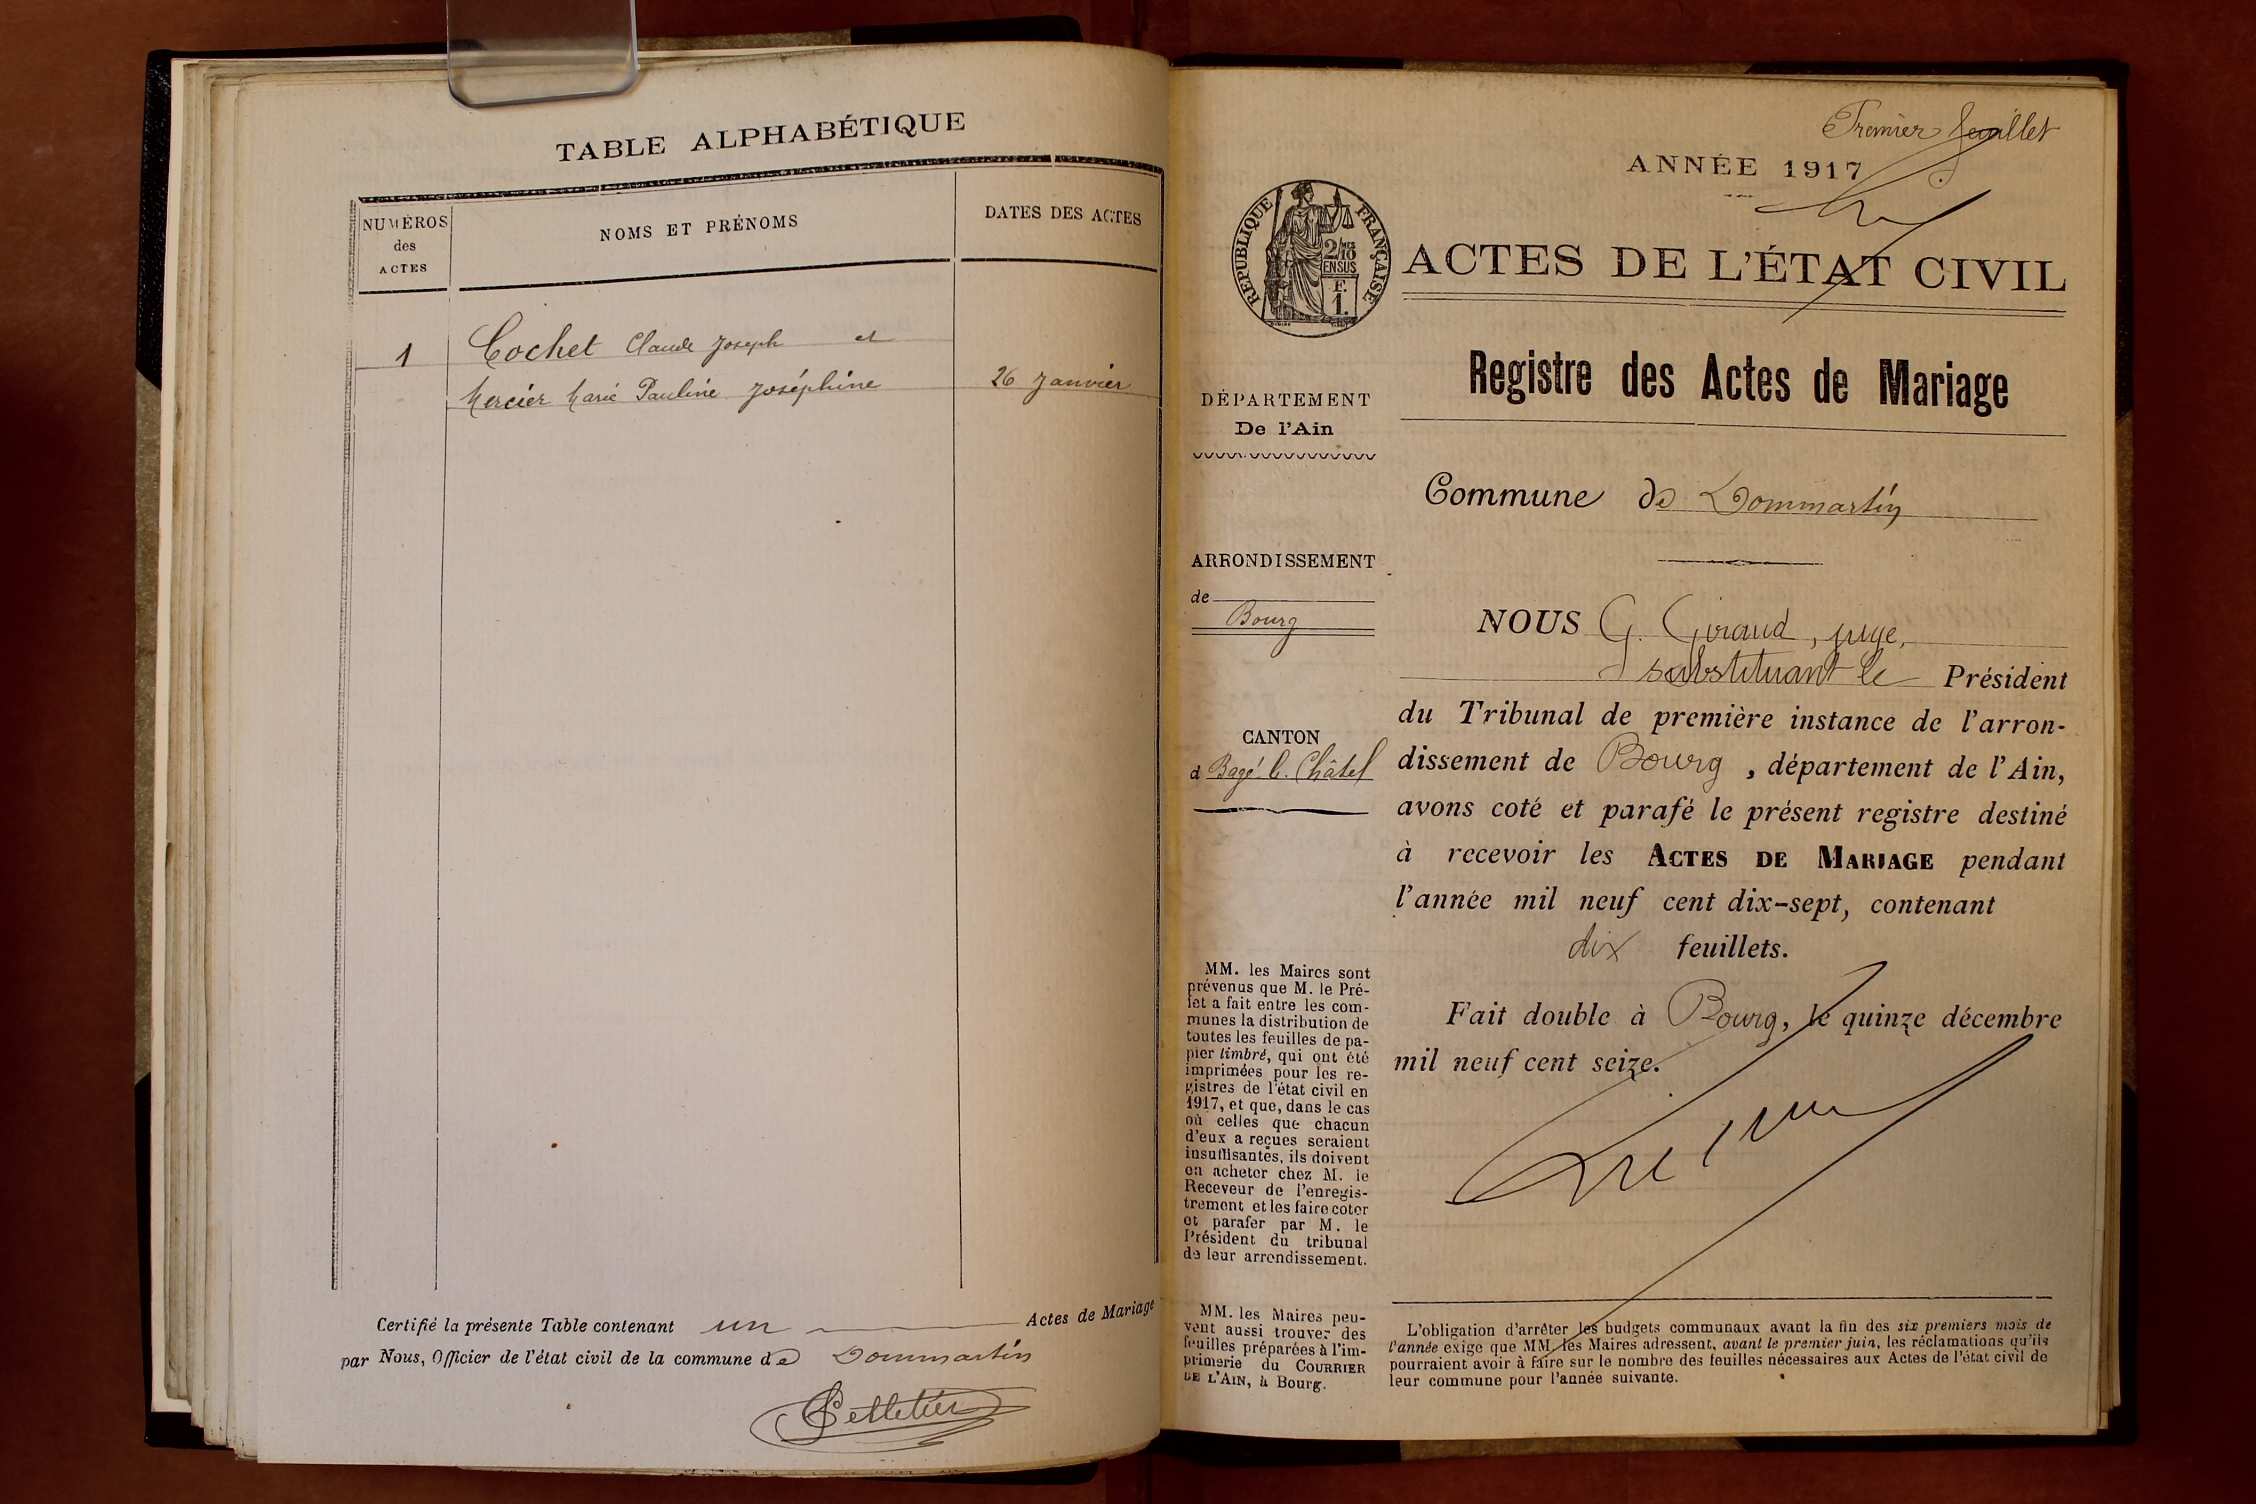 TABLE ALPHABÉTIQUE
NUMÉROS
des
ACTES
NOMS ET PRÉNOMS
DATES DES ACTES
1
Cochet Claude Joseph et
Mercier Marie Pauline Joséphine
26 Janvier
Certifié la présente Table contenant un Actes de Mariage
par Nous, Officier de l'état civil de la commune de Dommartin
Pelletier
Premier feuillet
ANNÉE 1917
RÉPUBLIQUE FRANÇAISE
2/10 MES
EN SUS
F.
1.
ACTES DE L'ÉTAT CIVIL
Registre des Actes de Mariage
DÉPARTEMENT
De l'Ain
Commune de Dommartin
ARRONDISSEMENT
de
Bourg
CANTON
d Bagé le Châtel
NOUS G. Giraud, juge,
substituant le Président
du Tribunal de première instance de l'arron-
dissement de Bourg, département de l'Ain,
avons coté et parafé le présent registre destiné
à recevoir les ACTES DE MARIAGE pendant
l'année mil neuf cent dix-sept, contenant
dix feuillets.
Fait double à Bourg, le quinze décembre
mil neuf cent seize.
MM. les Maires sont
prévenus que M. le Pré-
fet a fait entre les com-
munes la distribution de
toutes les feuilles de pa-
pier timbré, qui ont été
imprimées pour les re-
gistres de l'état civil en
1917, et que, dans le cas
où celles que chacun
d'eux a reçues seraient
insuffisantes, ils doivent
en acheter chez M. le
Receveur de l'enregis-
trement et les faire coter
et parafer par M. le
Président du tribunal
de leur arrondissement.
MM. les Maires peu-
vent aussi trouver des
feuilles préparées à l'im-
primerie du COURRIER
DE L'AIN, à Bourg.
L'obligation d'arrêter les budgets communaux avant la fin des six premiers mois de
l'année exige que MM. les Maires adressent, avant le premier juin, les réclamations qu'ils
pourraient avoir à faire sur le nombre des feuilles nécessaires aux Actes de l'état civil de
leur commune pour l'année suivante.